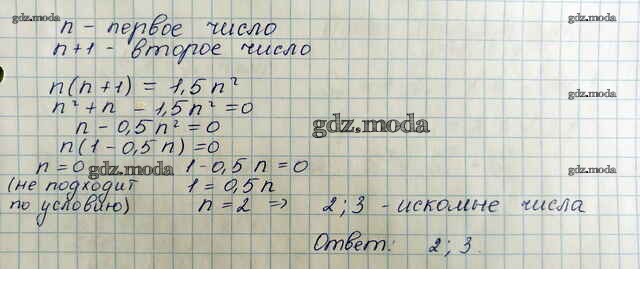 gdz.moda
gdz.moda
n - первое число
n+1 - второе число
n(n+1) = 1,5n²
gdz.moda
n² + n - 1,5n² = 0
n - 0,5n² = 0
gdz.moda
n(1 - 0,5n) = 0
n = 0 gdz.moda 1 - 0,5n = 0
gdz.moda
(не подходит 1 = 0,5n
по условию) n = 2 => 2; 3 - искомые числа
Ответ: 2; 3.